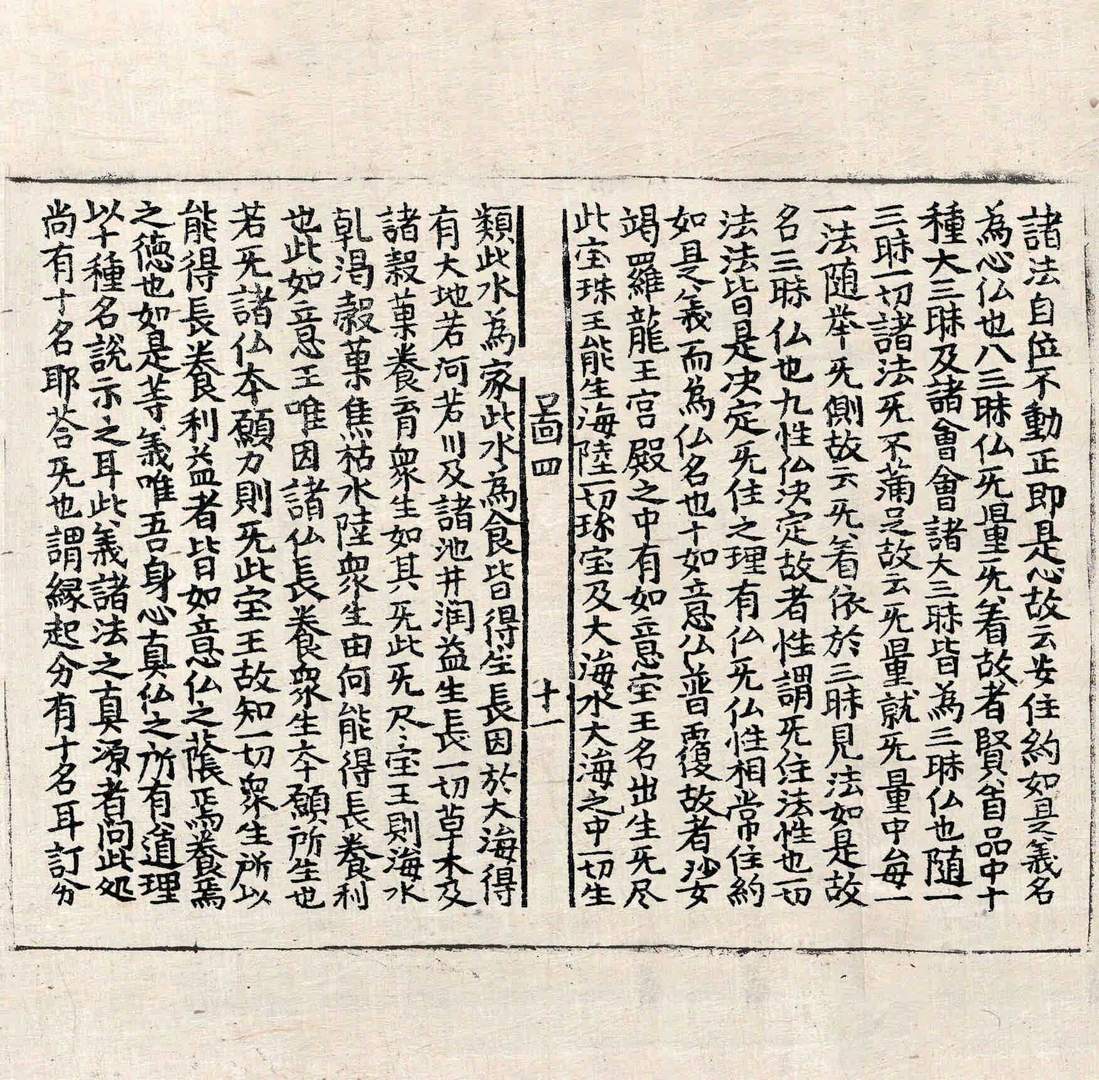 諸法自位不動正即是心故云安住約如是義名
為心仏也八三昧仏旡量旡着故者賢首品中十
種大三昧及諸會會諸大三昧皆為三昧仏也随一
三昧一切諸法旡不蒲足故云旡量就旡量中每一
一法随举旡側故云旡着依於三昧見法如是故
名三昧仏也九性仏决定故者性謂旡住法性也一切
法法皆是决定旡住之理有仏旡仏性相常住約
如是義而為仏名也十如意仏普覆故者沙女
竭羅龍王宫殿之中有如意宝王名出生旡尽
此宝珠王能生海陸一切珎宝及大海水大海之中一切生
啚四
十一
類此水為家此水為食皆得生長因於大海得
有大地若河若川及諸池井润益生長一切草木及
諸穀菓養育衆生如其旡此旡尽宝王則海水
乹渴穀菓焦枯水陸衆生由何能得長養利
也此如意王唯因諸仏長養衆生夲願所生也
若旡諸仏夲願力則旡此宝王故知一切衆生所以
能得長養利益者皆如意仏之䕃焉養焉
之德也如是等義唯吾身心真仏之所有道理
以十種名說示之耳此義諸法之真源者问此処
尚有十名耶荅旡也謂縁起分有十名耳訂分